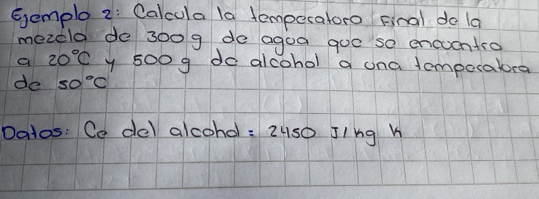 Ejemplo 2: Calcula la temperatura Final de la
mezcla de 300g de agua que se encuentra
a 20°C y 500 g de alcohol a una temperatura
de 50°C
Datos: Ce del alcohol = 2450 J/kg K